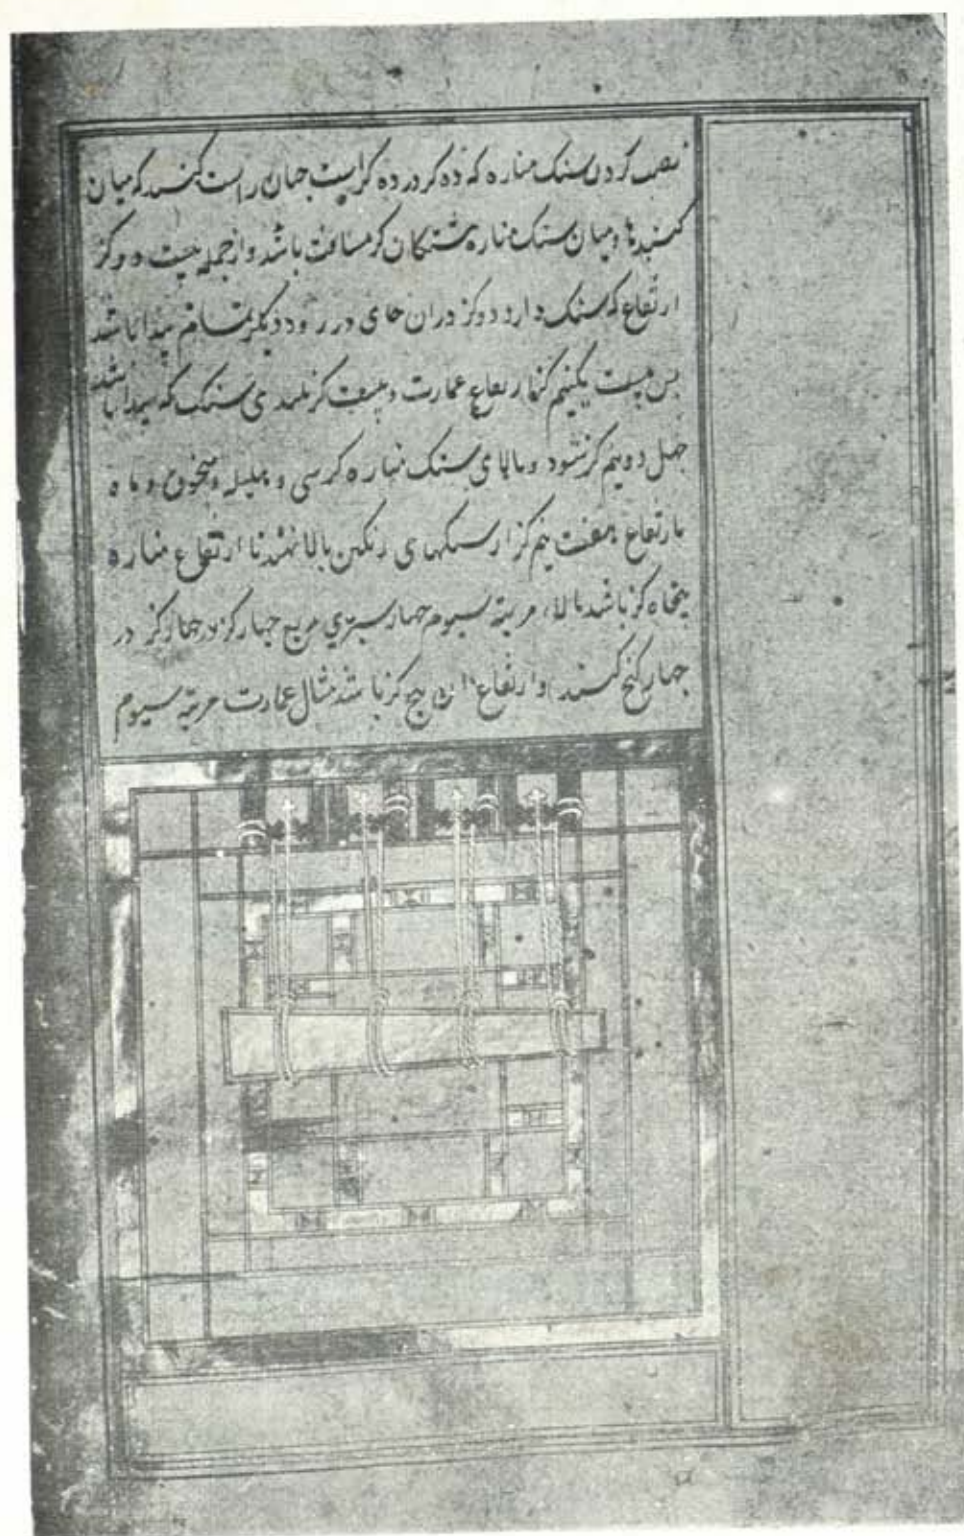 نصب کردن سنک مناره که ده کز در ده کز است جهان راست کنند که میان
کنبدها و میان سنک مناره شتکان کز مسافت باشد و از جمله بیست و دو کز
ارتفاع که سنک دارد دو کز دران جای در رود دیکر تمام پیدا باشد
بس بیست یکنیم کز ارتفاع عمارت و بیست کز بلندی سنک که پیدا باشد
جهل و دو نیم کز شود و بالای سنک مناره کرسی و هلیله و و ماه
بارتفاع هفت نیم کز از سنکهای رنکین بالا نهند تا ارتفاع مناره
پنجاه کز باشد بالاء مرتبه سیوم جهار مربع جهار کز در جهار کز در
جهار کنج کنند و ارتفاع ان پنج کز باشد مثال عمارت مرتبه سیوم